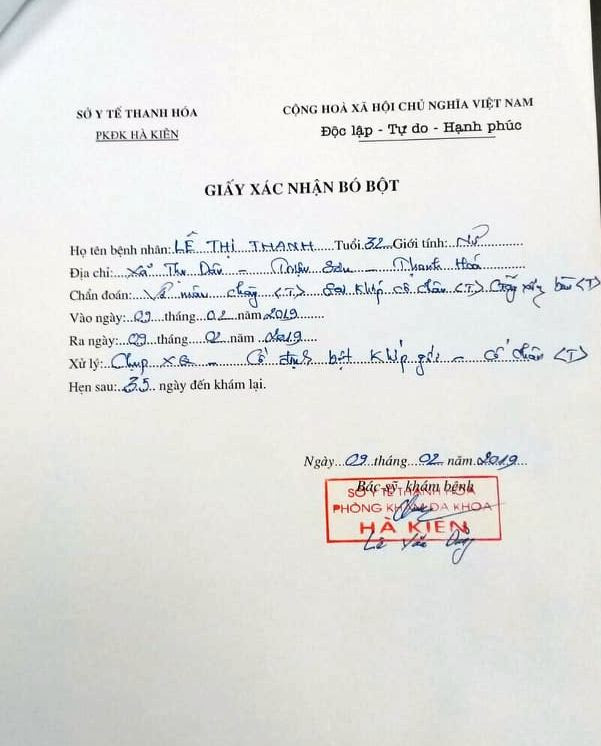 SỞ Y TẾ THANH HÓA
PKĐK HÀ KIÊN
CỘNG HOÀ XÃ HỘI CHỦ NGHĨA VIỆT NAM
Độc lập - Tự do - Hạnh phúc
GIẤY XÁC NHẬN BÓ BỘT
Họ tên bệnh nhân: LÊ THỊ THANH Tuổi 32 Giới tính: Nữ
Địa chỉ: Xã - Triệu Sơn - Thanh Hoá
Chẩn đoán: Vỡ mâm chày <T> khớp cổ chân <T> xương bàn <T>
Vào ngày: 09 tháng 02 năm 2019
Ra ngày: 09 tháng 02 năm 2019
Xử lý: Chụp XQ - Cố định bột khớp gối - cổ chân <T>
Hẹn sau: 35 ngày đến khám lại.
Ngày 09 tháng 02 năm 2019
Bác sỹ khám bệnh
SỞ Y TẾ THANH HÓA
PHÒNG KHÁM ĐA KHOA
HÀ KIÊN
Lê Văn